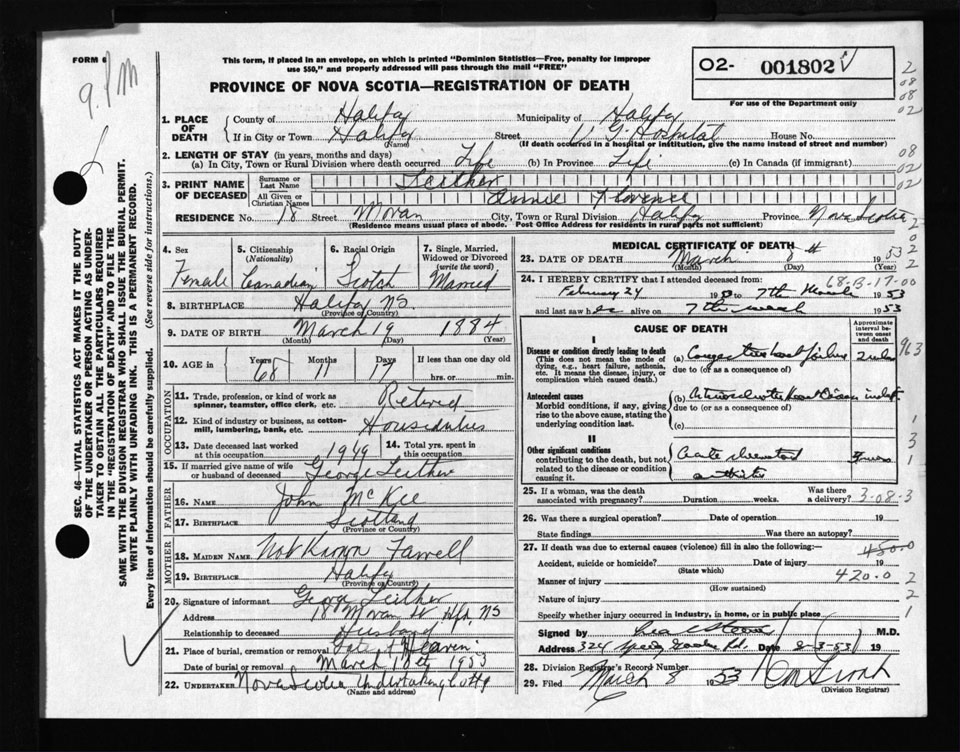 FORM 6
This form, if placed in an envelope, on which is printed "Dominion Statistics—Free, penalty for improper
use $50," and properly addressed will pass through the mail "FREE"
O2- 001802
For use of the Department only
PROVINCE OF NOVA SCOTIA—REGISTRATION OF DEATH
9. PM
1. PLACE OF DEATH
County of Halifax Municipality of Halifax
If in City or Town Halifax Street Hospital House No.
(Name) (If death occurred in a hospital or institution, give the name instead of street and number)
2. LENGTH OF STAY (in years, months and days)
(a) In City, Town or Rural Division where death occurred Life (b) In Province Life (c) In Canada (if immigrant)
3. PRINT NAME OF DECEASED
Surname or Last Name Leither
All Given or Christian Names Annie Florence
RESIDENCE No. 18 Street Moran City, Town or Rural Division Halifax Province Nova Scotia
(Residence means usual place of abode. Post Office Address for residents in rural parts not sufficient)
SEC. 46—VITAL STATISTICS ACT MAKES IT THE DUTY
OF THE UNDERTAKER OR PERSON ACTING AS UNDER-
TAKER TO OBTAIN ALL THE PARTICULARS REQUIRED
IN THE "REGISTRATION OF DEATH" AND TO FILE THE
SAME WITH THE DIVISION REGISTRAR WHO SHALL ISSUE THE BURIAL PERMIT.
WRITE PLAINLY WITH UNFADING INK. THIS IS A PERMANENT RECORD.
Every item of information should be carefully supplied. (See reverse side for instructions.)
4. Sex Female
5. Citizenship (Nationality) Canadian
6. Racial Origin Scotch
7. Single, Married, Widowed or Divorced (write the word) Married
8. BIRTHPLACE Halifax NS
(Province or Country)
9. DATE OF BIRTH March 19 1884
(Month) (Day) (Year)
10. AGE in Years 68 Months 11 Days 17 If less than one day old hrs. or min.
OCCUPATION
11. Trade, profession or kind of work as
spinner, teamster, office clerk, etc. Retired
12. Kind of industry or business, as cotton-
mill, lumbering, bank, etc. Houseduties
13. Date deceased last worked at this occupation 1949
14. Total yrs. spent in this occupation
15. If married give name of wife or husband of deceased George Leither
FATHER
16. NAME John McKee
17. BIRTHPLACE Scotland
(Province or Country)
MOTHER
18. MAIDEN NAME Not Known Farrell
19. BIRTHPLACE Halifax
(Province or Country)
20. Signature of informant George Leither
Address 18 Moran St Hfx, NS
Relationship to deceased Husband
21. Place of burial, cremation or removal Gate of Heaven
Date of burial or removal March 1953
22. UNDERTAKER Nova Scotia Undertaking
(Name and address)
MEDICAL CERTIFICATE OF DEATH
23. DATE OF DEATH March 8th 1953
(Month) (Day) (Year)
24. I HEREBY CERTIFY that I attended deceased from: 68-B-17-00
February 24 19 to 7th March 1953
and last saw her alive on 7th 1953
CAUSE OF DEATH
Approximate interval between onset and death
I
Disease or condition directly leading to death
(This does not mean the mode of dying, e.g., heart failure, asthenia, etc. It means the disease, injury, or complication which caused death.)
(a) Congestive heart failure
due to (or as a consequence of)
Antecedent causes
Morbid conditions, if any, giving rise to the above cause, stating the underlying condition last.
(b) Arteriosclerotic Heart Disease
due to (or as a consequence of)
(c)
II
Other significant conditions
contributing to the death, but not related to the disease or condition causing it.
arthritis
25. If a woman, was the death associated with pregnancy? Duration weeks. Was there a delivery? 3-08-3
26. Was there a surgical operation? Date of operation 19
State findings Was there an autopsy?
27. If death was due to external causes (violence) fill in also the following:— 450.0
Accident, suicide or homicide? Date of injury 19
(State which)
Manner of injury 420.0
(How sustained)
Nature of injury
Specify whether injury occurred in industry, in home, or in public place
Signed by M.D.
Address 324 Rd. Date 8-3-53 19
28. Division Registrar's Record Number
29. Filed March 8 1953
(Division Registrar)